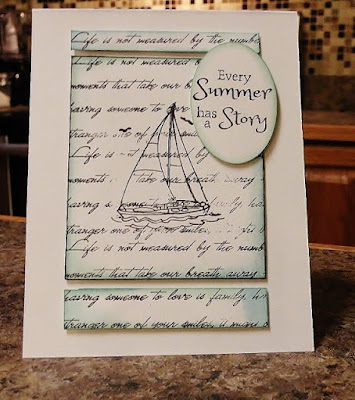 Life is not measured by the numbe
Life is not measured by the
moments that take our
having someone to
tranger one of
Life is measured by
moments take our away
having someone love family, ha
tranger one of smiles,
Life is not measured by the numb
moments that take our breath away
having someone to love is family, h
tranger one of your smiles, it
Every
Summer
has
a Story